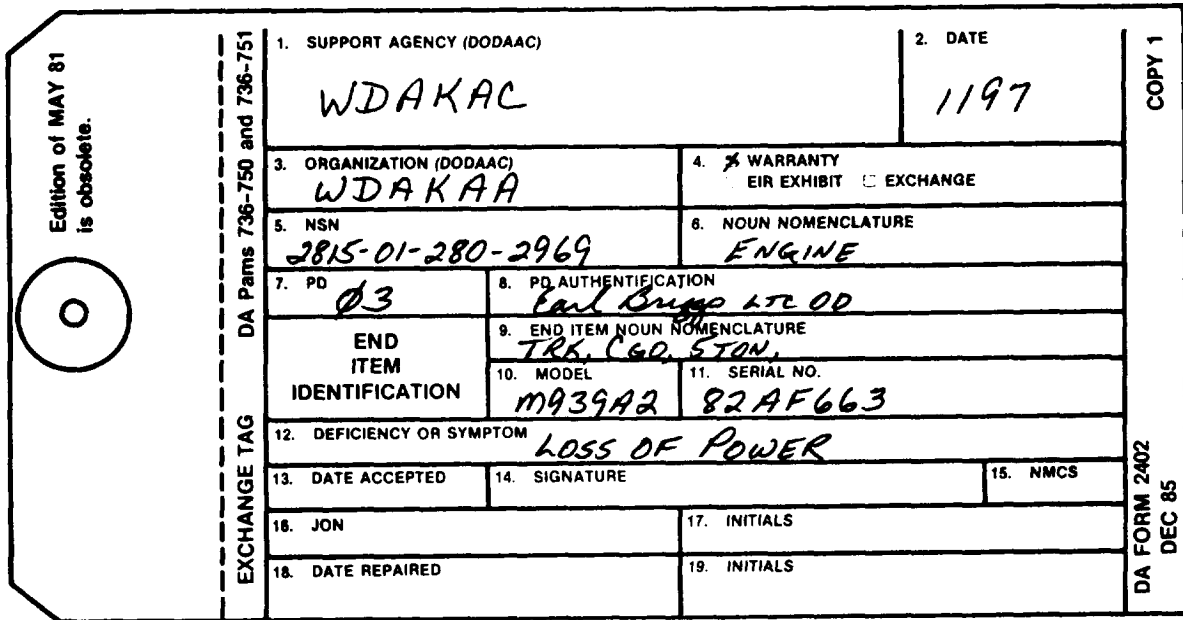 Edition of MAY 81
is obsolete.
EXCHANGE TAG DA Pams 736-750 and 736-751
1. SUPPORT AGENCY (DODAAC)
WDAKAC
2. DATE
1197
3. ORGANIZATION (DODAAC)
WDAKAA
4. X WARRANTY
EIR EXHIBIT EXCHANGE
5. NSN
2815-01-280-2969
6. NOUN NOMENCLATURE
ENGINE
7. PD
Ø3
8. PD AUTHENTIFICATION
Earl Briggs LTC OD
END
ITEM
IDENTIFICATION
9. END ITEM NOUN NOMENCLATURE
TRK, CGO, 5TON,
10. MODEL
M939A2
11. SERIAL NO.
82AF663
12. DEFICIENCY OR SYMPTOM
LOSS OF POWER
13. DATE ACCEPTED
14. SIGNATURE
15. NMCS
16. JON
17. INITIALS
18. DATE REPAIRED
19. INITIALS
DA FORM 2402
DEC 85
COPY 1